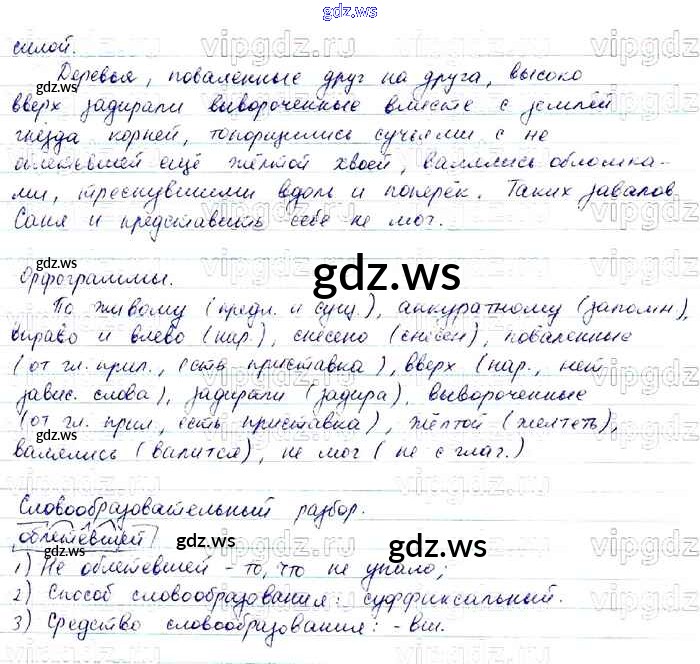 gdz.ws
силой.
Деревья, поваленные друг на друга, высоко
вверх задирали вывороченные вместе с землёй
гнёзда корней, топорщились сучьями с не
облетевшей ещё жёлтой хвоей, валялись обломка-
ми, треснувшими вдоль и поперёк. Таких завалов
Саня и представить себе не мог.
Орфограммы.
По живому (предл. и сущ.), аккуратному (запомн),
вправо и влево (нар.), снесено (снесён), поваленные
(от гл. прил., есть приставка), вверх (нар., нет
завис. слова), задирали (задира), вывороченные
(от гл. прил, есть приставка), жёлтой (желтеть),
валялись (валится), не мог (не с глаг.)
Словообразовательный разбор.
облетевшей
1) Не облетевшей - то, что не упало;
2) Способ словообразования: суффиксальный.
3) Средство словообразования: -вш.